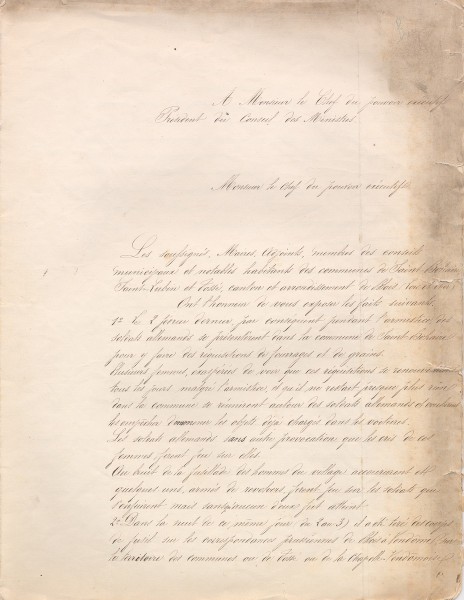 A Monsieur le Chef du pouvoir exécutif
Président du Conseil des Ministres
Monsieur le Chef du pouvoir exécutif
Les soussignés, Maires, Adjoints, membres des conseils
municipaux et notables habitants des communes de Saint
Saint-Lubin et Fossé, canton et arrondissement de Blois,
Ont l'honneur de vous exposer les faits suivants:
1º Le 2 février dernier, par conséquent pendant l'armistice, des
soldats allemands se présentèrent dans la commune de Saint
pour y faire des réquisitions de fourrages et de grains.
Plusieurs femmes, exaspérées de voir que ces réquisitions se
tous les jours malgré l'armistice, et qu'il ne restait presque plus rien
dans la commune se réunirent autour des soldats allemands et
les empêcher d'emmener les objets déjà chargés dans les voitures.
Les soldats allemands sans autre provocation que les cris de ces
femmes firent feu sur elles.
Au bruit de la fusillade des hommes du village accoururent et
quelques uns, armés de revolvers, firent feu sur les soldats qui
s'enfuirent mais sans qu'aucun d'eux fut atteint.
2º Dans la nuit de ce même jour (du 2 au 3) il a été tiré des coups
de fusil sur les correspondances prussiennes de Blois à Vendôme, sur
le territoire des communes ou de Fossé ou de la Chapelle-Vendômoise